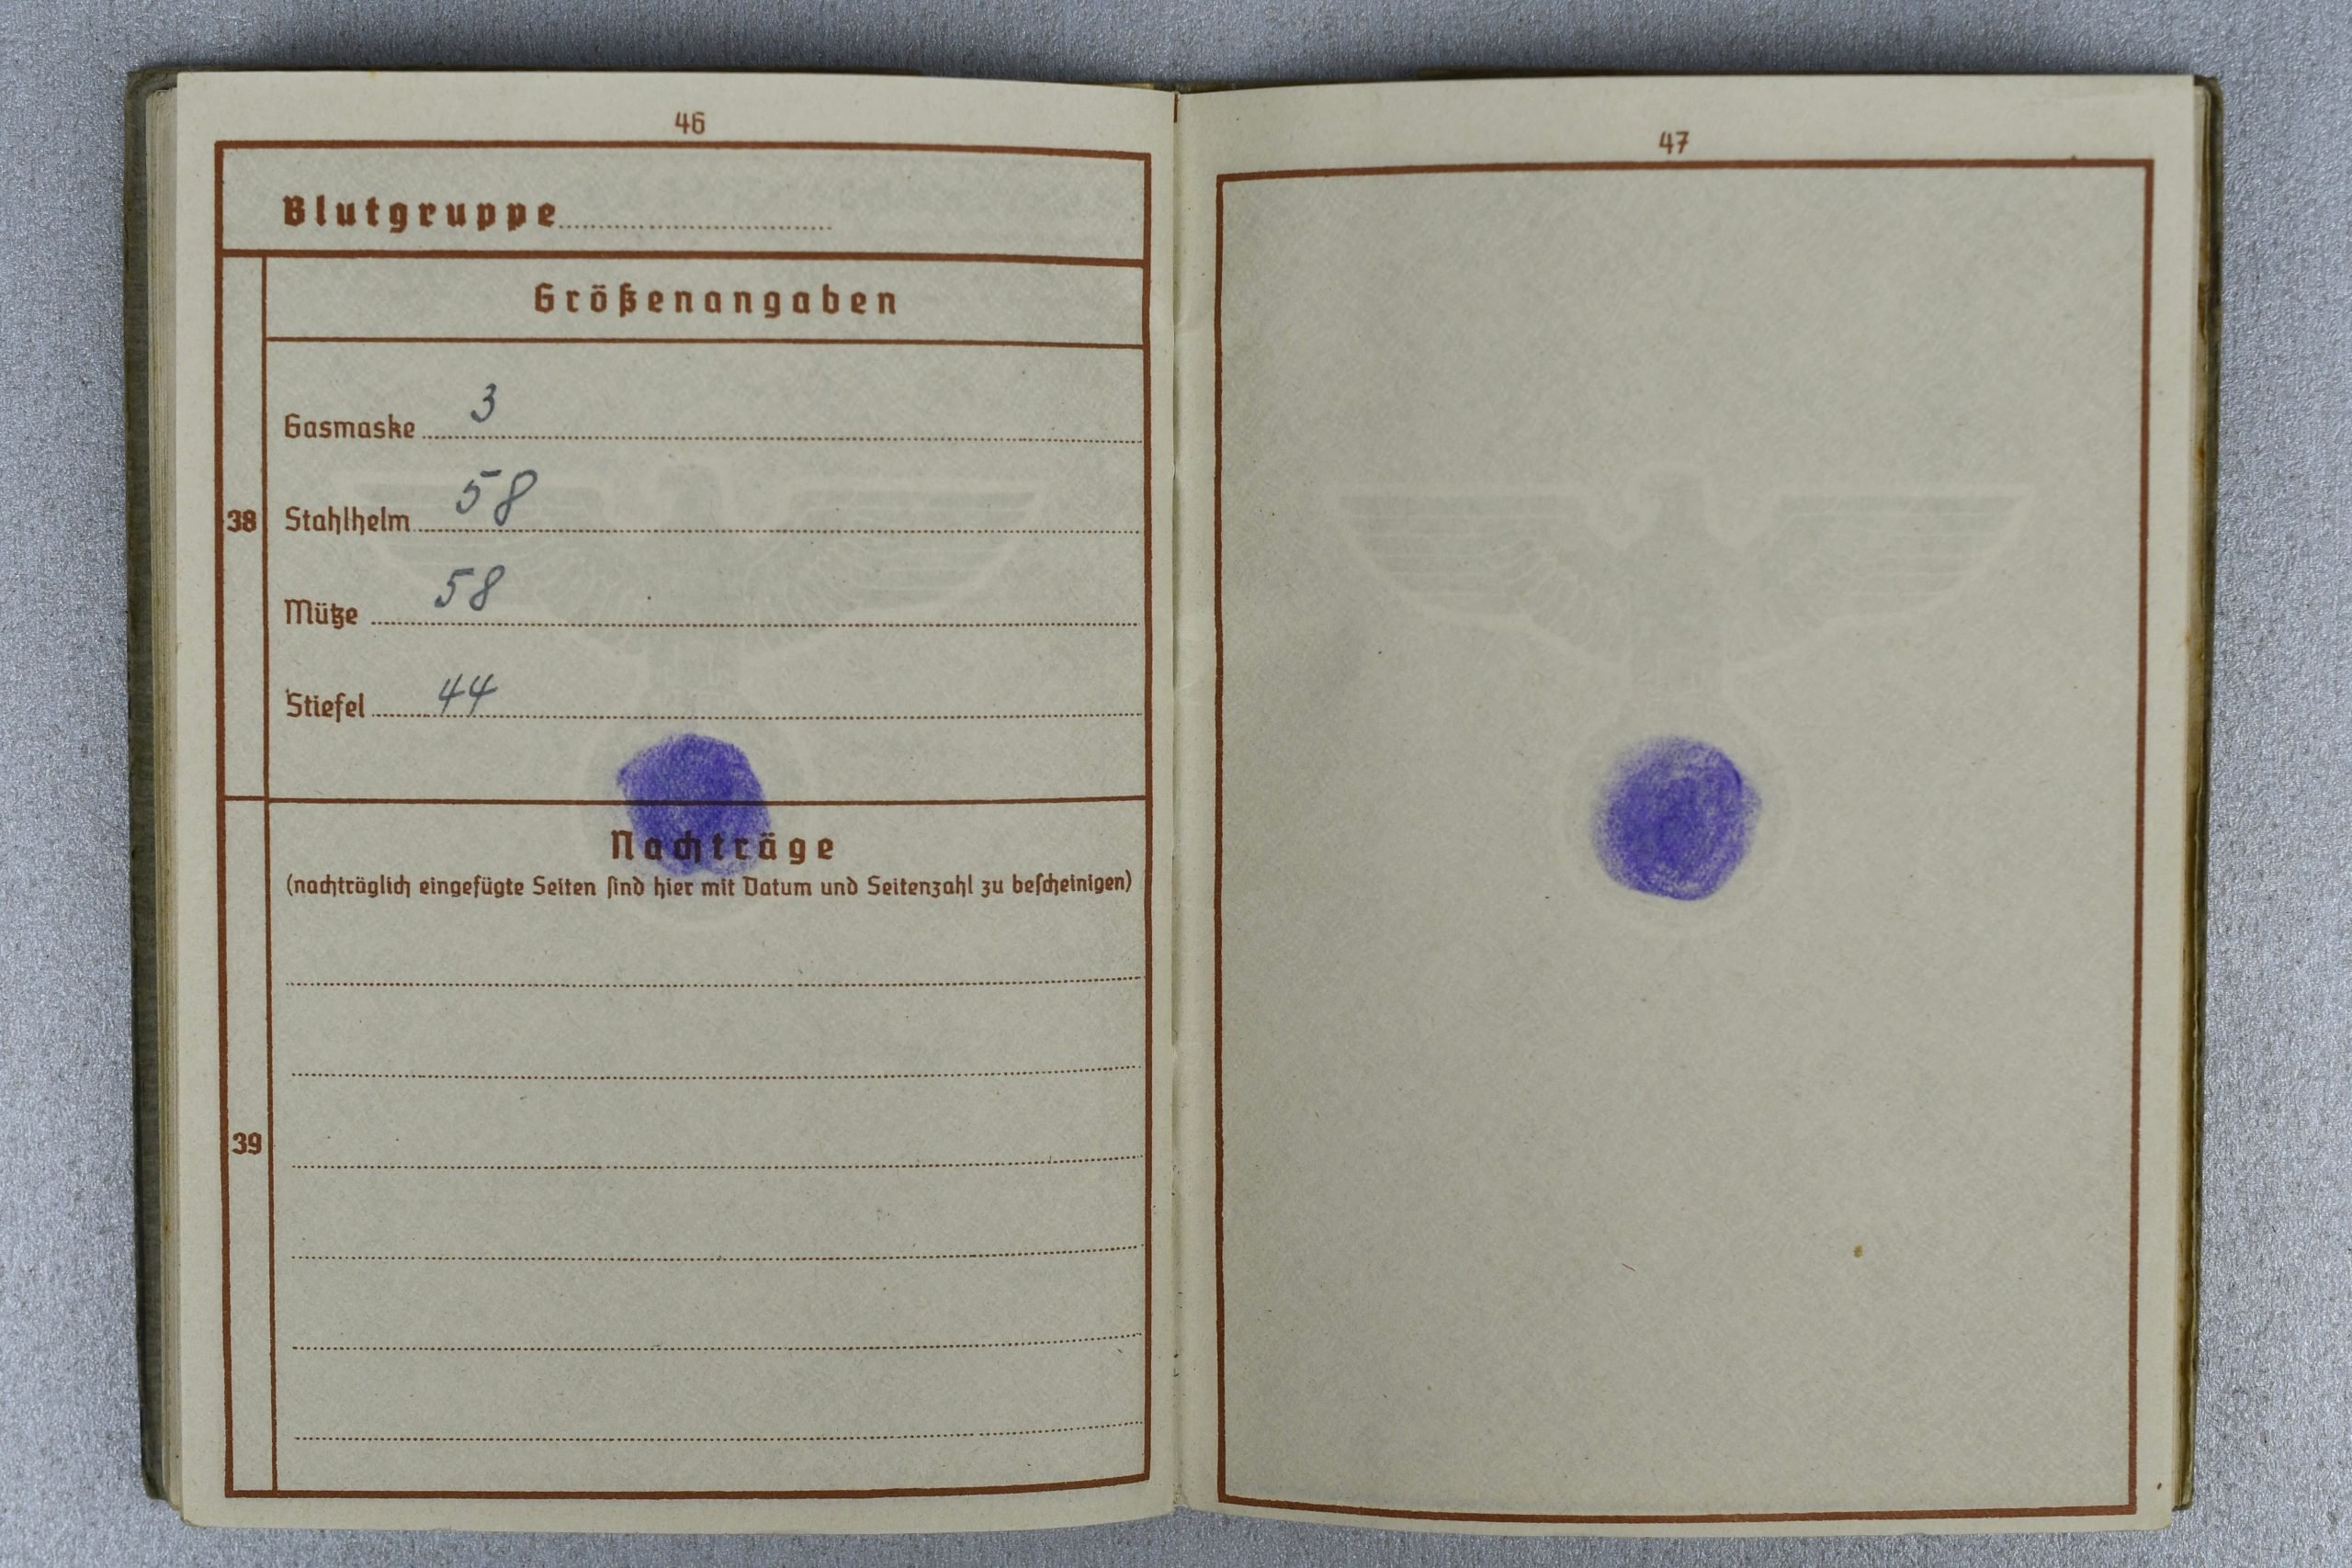 46
Blutgruppe
Größenangaben
Gasmaske 3
38 Stahlhelm 58
Mütze 58
Stiefel 44
Nachträge
(nachträglich eingefügte Seiten sind hier mit Datum und Seitenzahl zu bescheinigen)
39
47